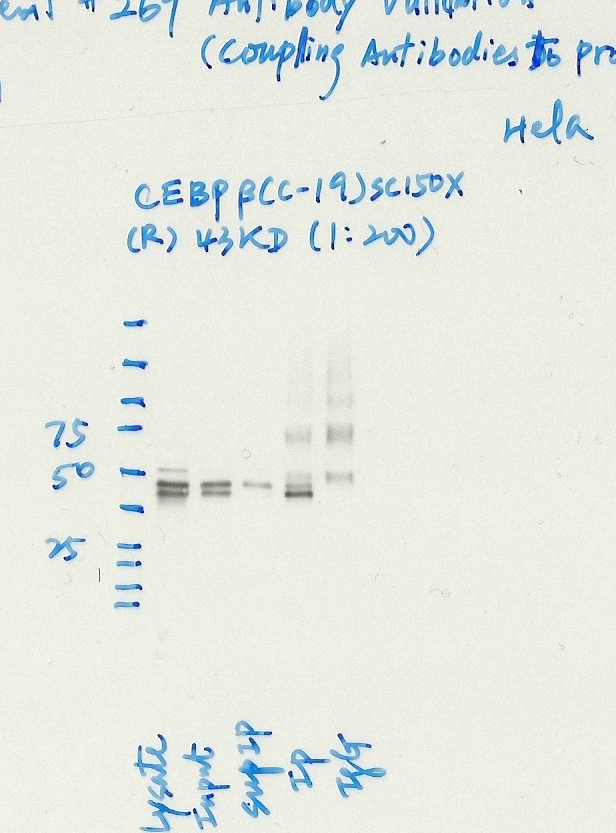 #269 Antibody
(Coupling Antibodies to pro
Hela
CEBP β(C-19)SC150X
(R) 43KD (1:200)
75
50
25
Lysate
Input
SupIP
IP
IgG